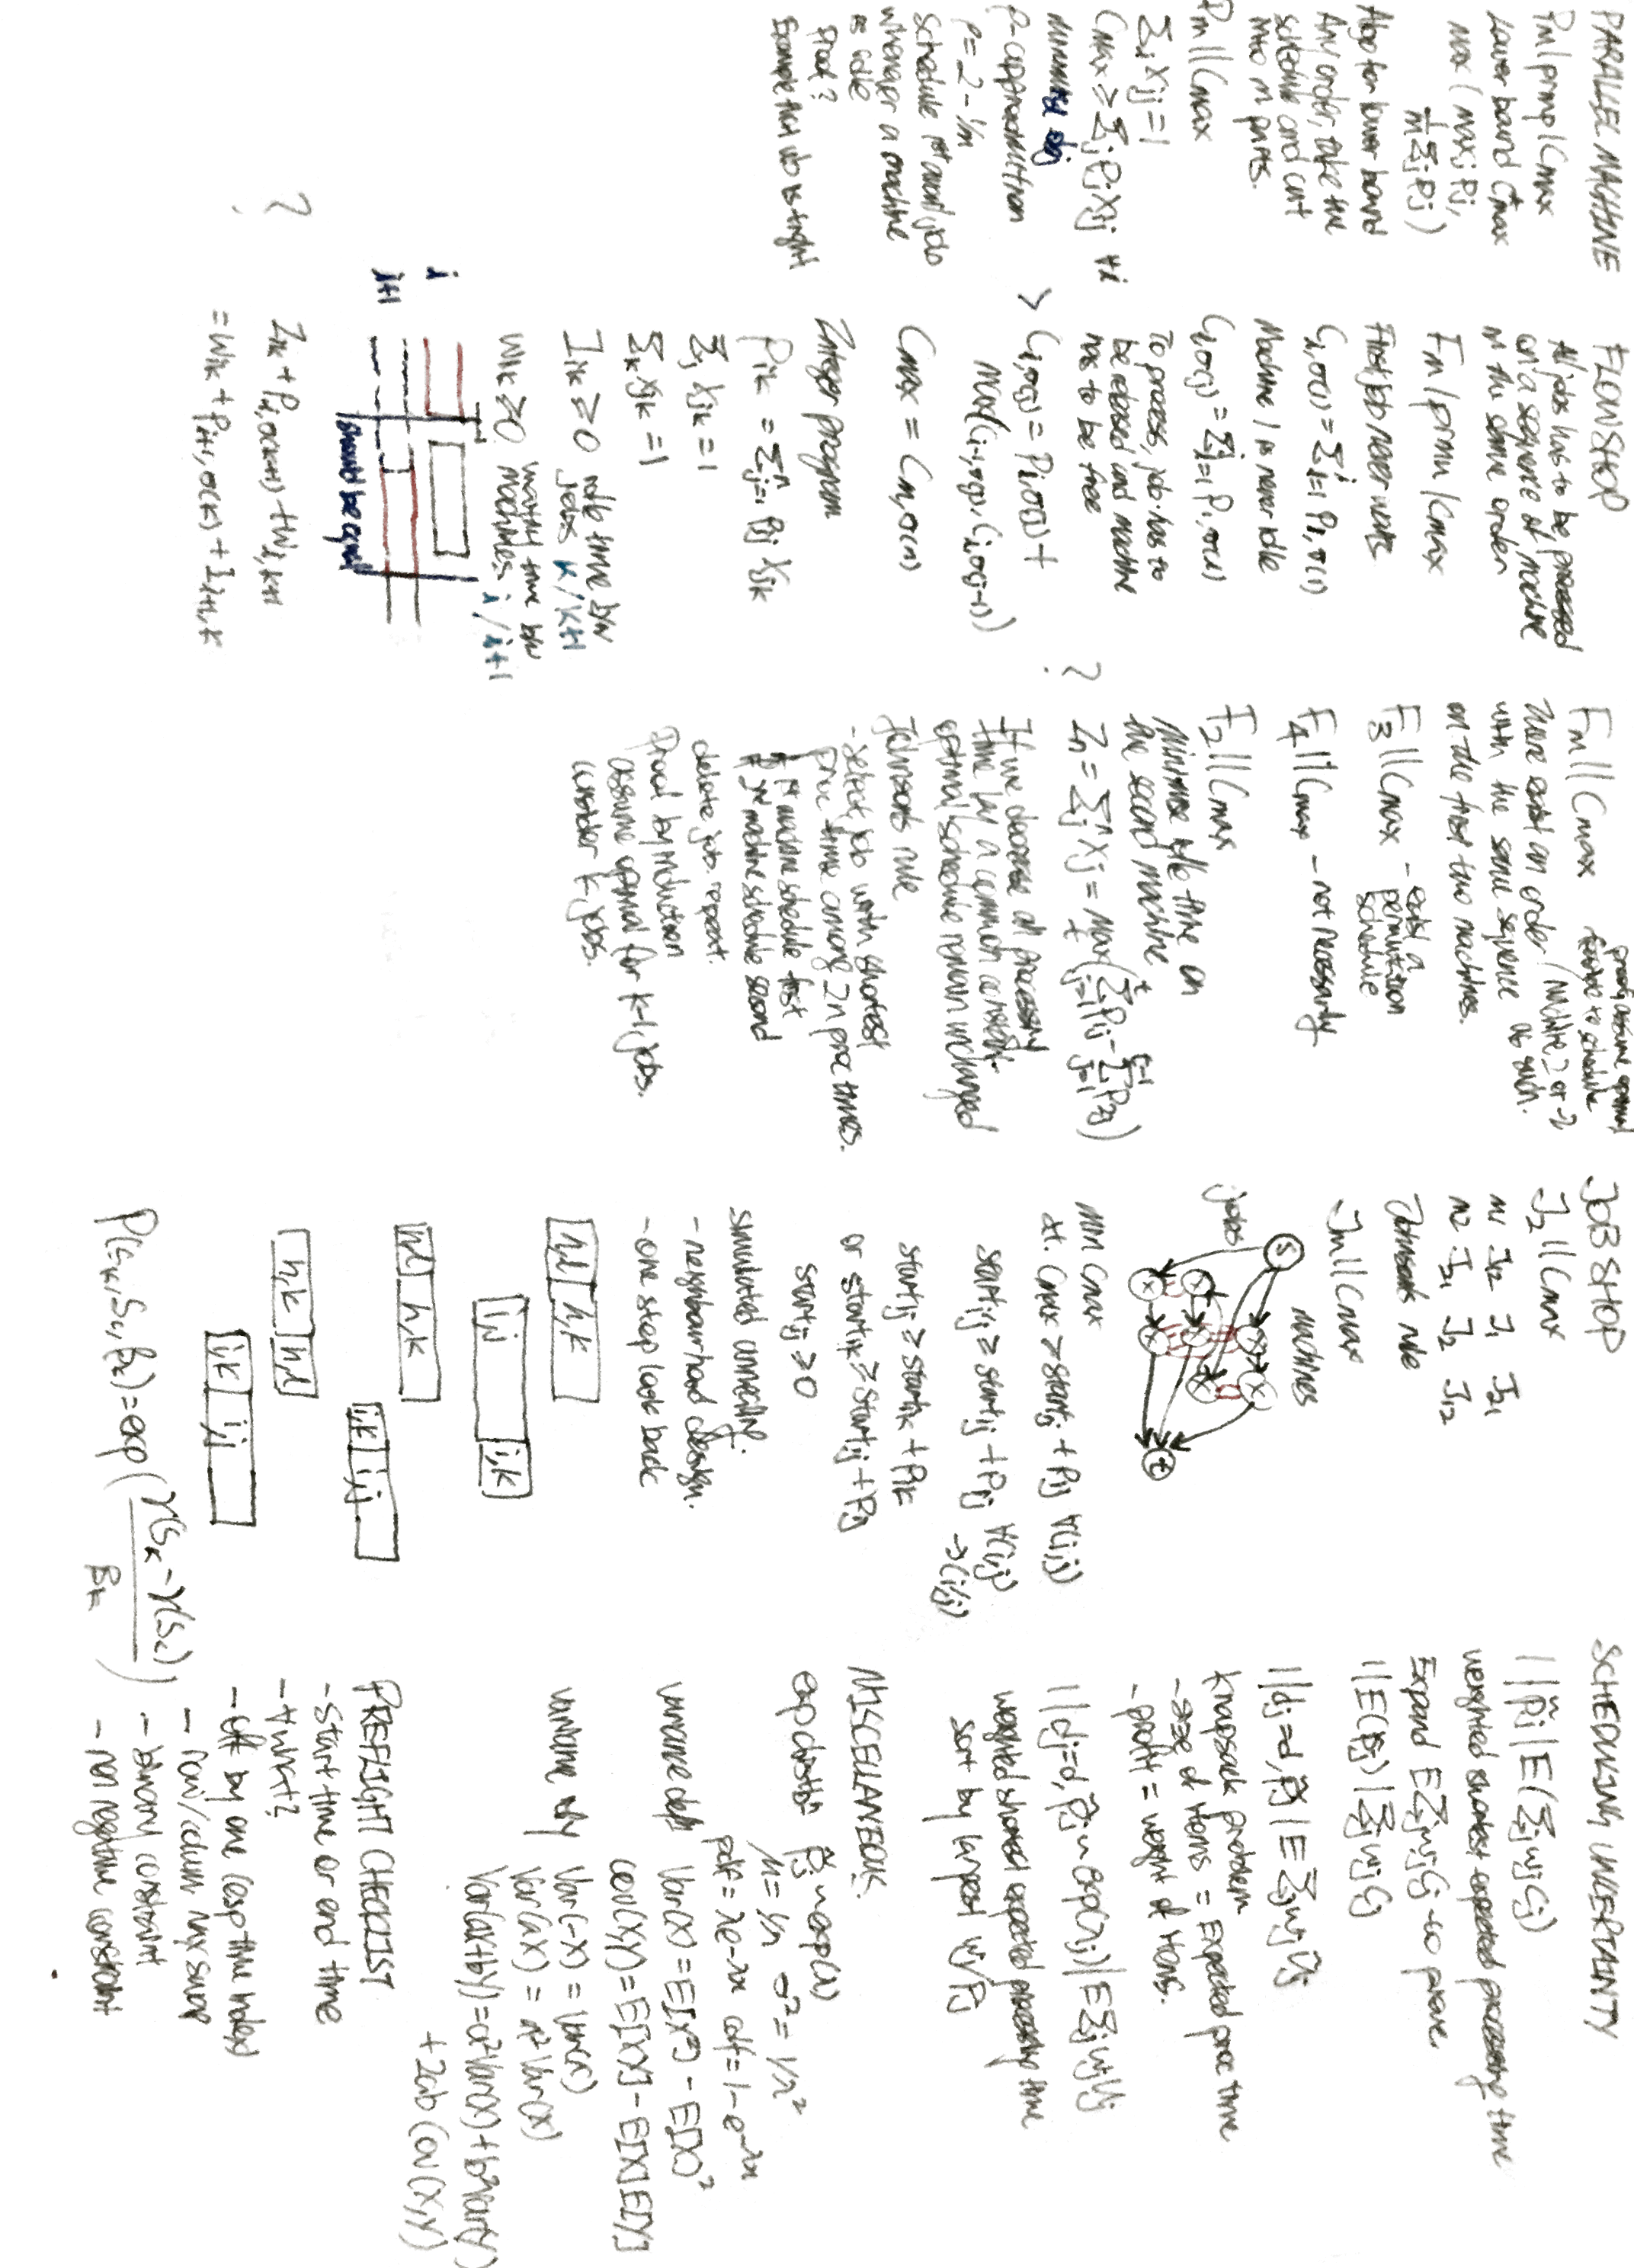 PARALLEL MACHINE
Pm | prmp | Cmax
Lower bound C*max
max ( maxj Pj,
1/m Σj Pj )
Algo for lower bound
Any order, take the
schedule and cut
into m parts.
Pm || Cmax
Σi Xij = 1
Cmax ≥ Σj Pj Xij ∀i
minimise obj
ρ-approximation
ρ = 2 - 1/m
schedule next job
whenever a machine
is idle
Proof?
Example that ub is tight
FLOW SHOP
All jobs has to be processed
on a sequence of machine
in the same order
Fm | prmu | Cmax
First job never waits
Ci,σ(1) = Σi l=1 Pl,σ(1)
Machine 1 is never idle
C1,σ(j) = Σj l=1 P1,σ(l)
To process, job has to
be released and machine
has to be free
> Ci,σ(j) = Pi,σ(j) +
max(Ci-1,σ(j), Ci,σ(j-1))
Cmax = Cm,σ(n)
Integer program
Pik = Σn j=1 Pij Xjk
Σj Xjk = 1
Σk Xjk = 1
Iik ≥ 0 idle time b/w jobs k/k+1
Wik ≥ 0 waiting time b/w machines i/i+1
i
i+1
should be equal
?
Iik + Pi,σ(k+1) + Wi,k+1
= Wik + Pi+1,σ(k) + Ii+1,k
Fm || Cmax
proof, assume optimal
there exist an order
with the same sequence
on the first two machines.
F3 || Cmax - exist a
permutation
schedule
F4 || Cmax - not necessarily
F2 || Cmax
minimise idle time on
the second machine
? In = Σn j Xj = max t (Σt j=1 P1j - Σt-1 j=1 P2j)
If we decrease all processing
time by a common constant
optimal schedule remain unchanged
Johnson's rule
- select job with shortest
proc time among 2n proc times.
if 1st machine schedule first
if 2nd machine schedule second
delete job. repeat.
Proof by induction
assume optimal for k-1 jobs.
consider k jobs.
JOB SHOP
J2 || Cmax
m1 J12 J1 J21
m2 J21 J2 J12
Johnson's rule
Jm || Cmax
machines
jobs
S
t
min Cmax
st. Cmax ≥ startij + Pij ∀(i,j)
starti'j ≥ startij + Pij ∀(i,j)
→(i',j)
startij ≥ startik + Pik
or startik ≥ startij + Pij
startij ≥ 0
simulated annealing.
- neighbourhood design.
- one step look back
h,l h,k
i,j i,k
h,l h,k
i,k i,j
h,k h,l
i,k i,j
P(Sk, Sc, βk) = exp( γ(Sk - γ(Sc) / βk )
SCHEDULING UNCERTAINTY
1 | p̃j | E(Σj wj Cj)
weighted shortest expected processing time
Expand E Σj wj Cj to prove
1 | E(p̃j) | Σj wj Cj
1 | dj = d, p̃j | E Σj wj Uj
Knapsack problem
- size of items = Expected proc time
- profit = weight of items.
1 | dj = d, p̃j ~ exp(λj) | E Σj wj Uj
weighted shortest expected processing time
sort by largest wj/Pj
MISCELLANEOUS.
exp distribn p̃j ~ exp(λ)
μ = 1/λ σ² = 1/λ²
pdf = λe-λx cdf = 1 - e-λx
variance defn Var(X) = E[X²] - E[X]²
Cov(X,Y) = E[XY] - E[X]E[Y]
variance Var(-X) = Var(X)
Var(aX) = a² Var(X)
Var(aX+bY) = a²Var(X) + b²Var(Y)
+ 2ab Cov(X,Y)
PREFLIGHT CHECKLIST
- start time or end time
- ∀ what?
- off by one (esp time index)
- row/column mix swap
- binary constraint
- non negative constraint